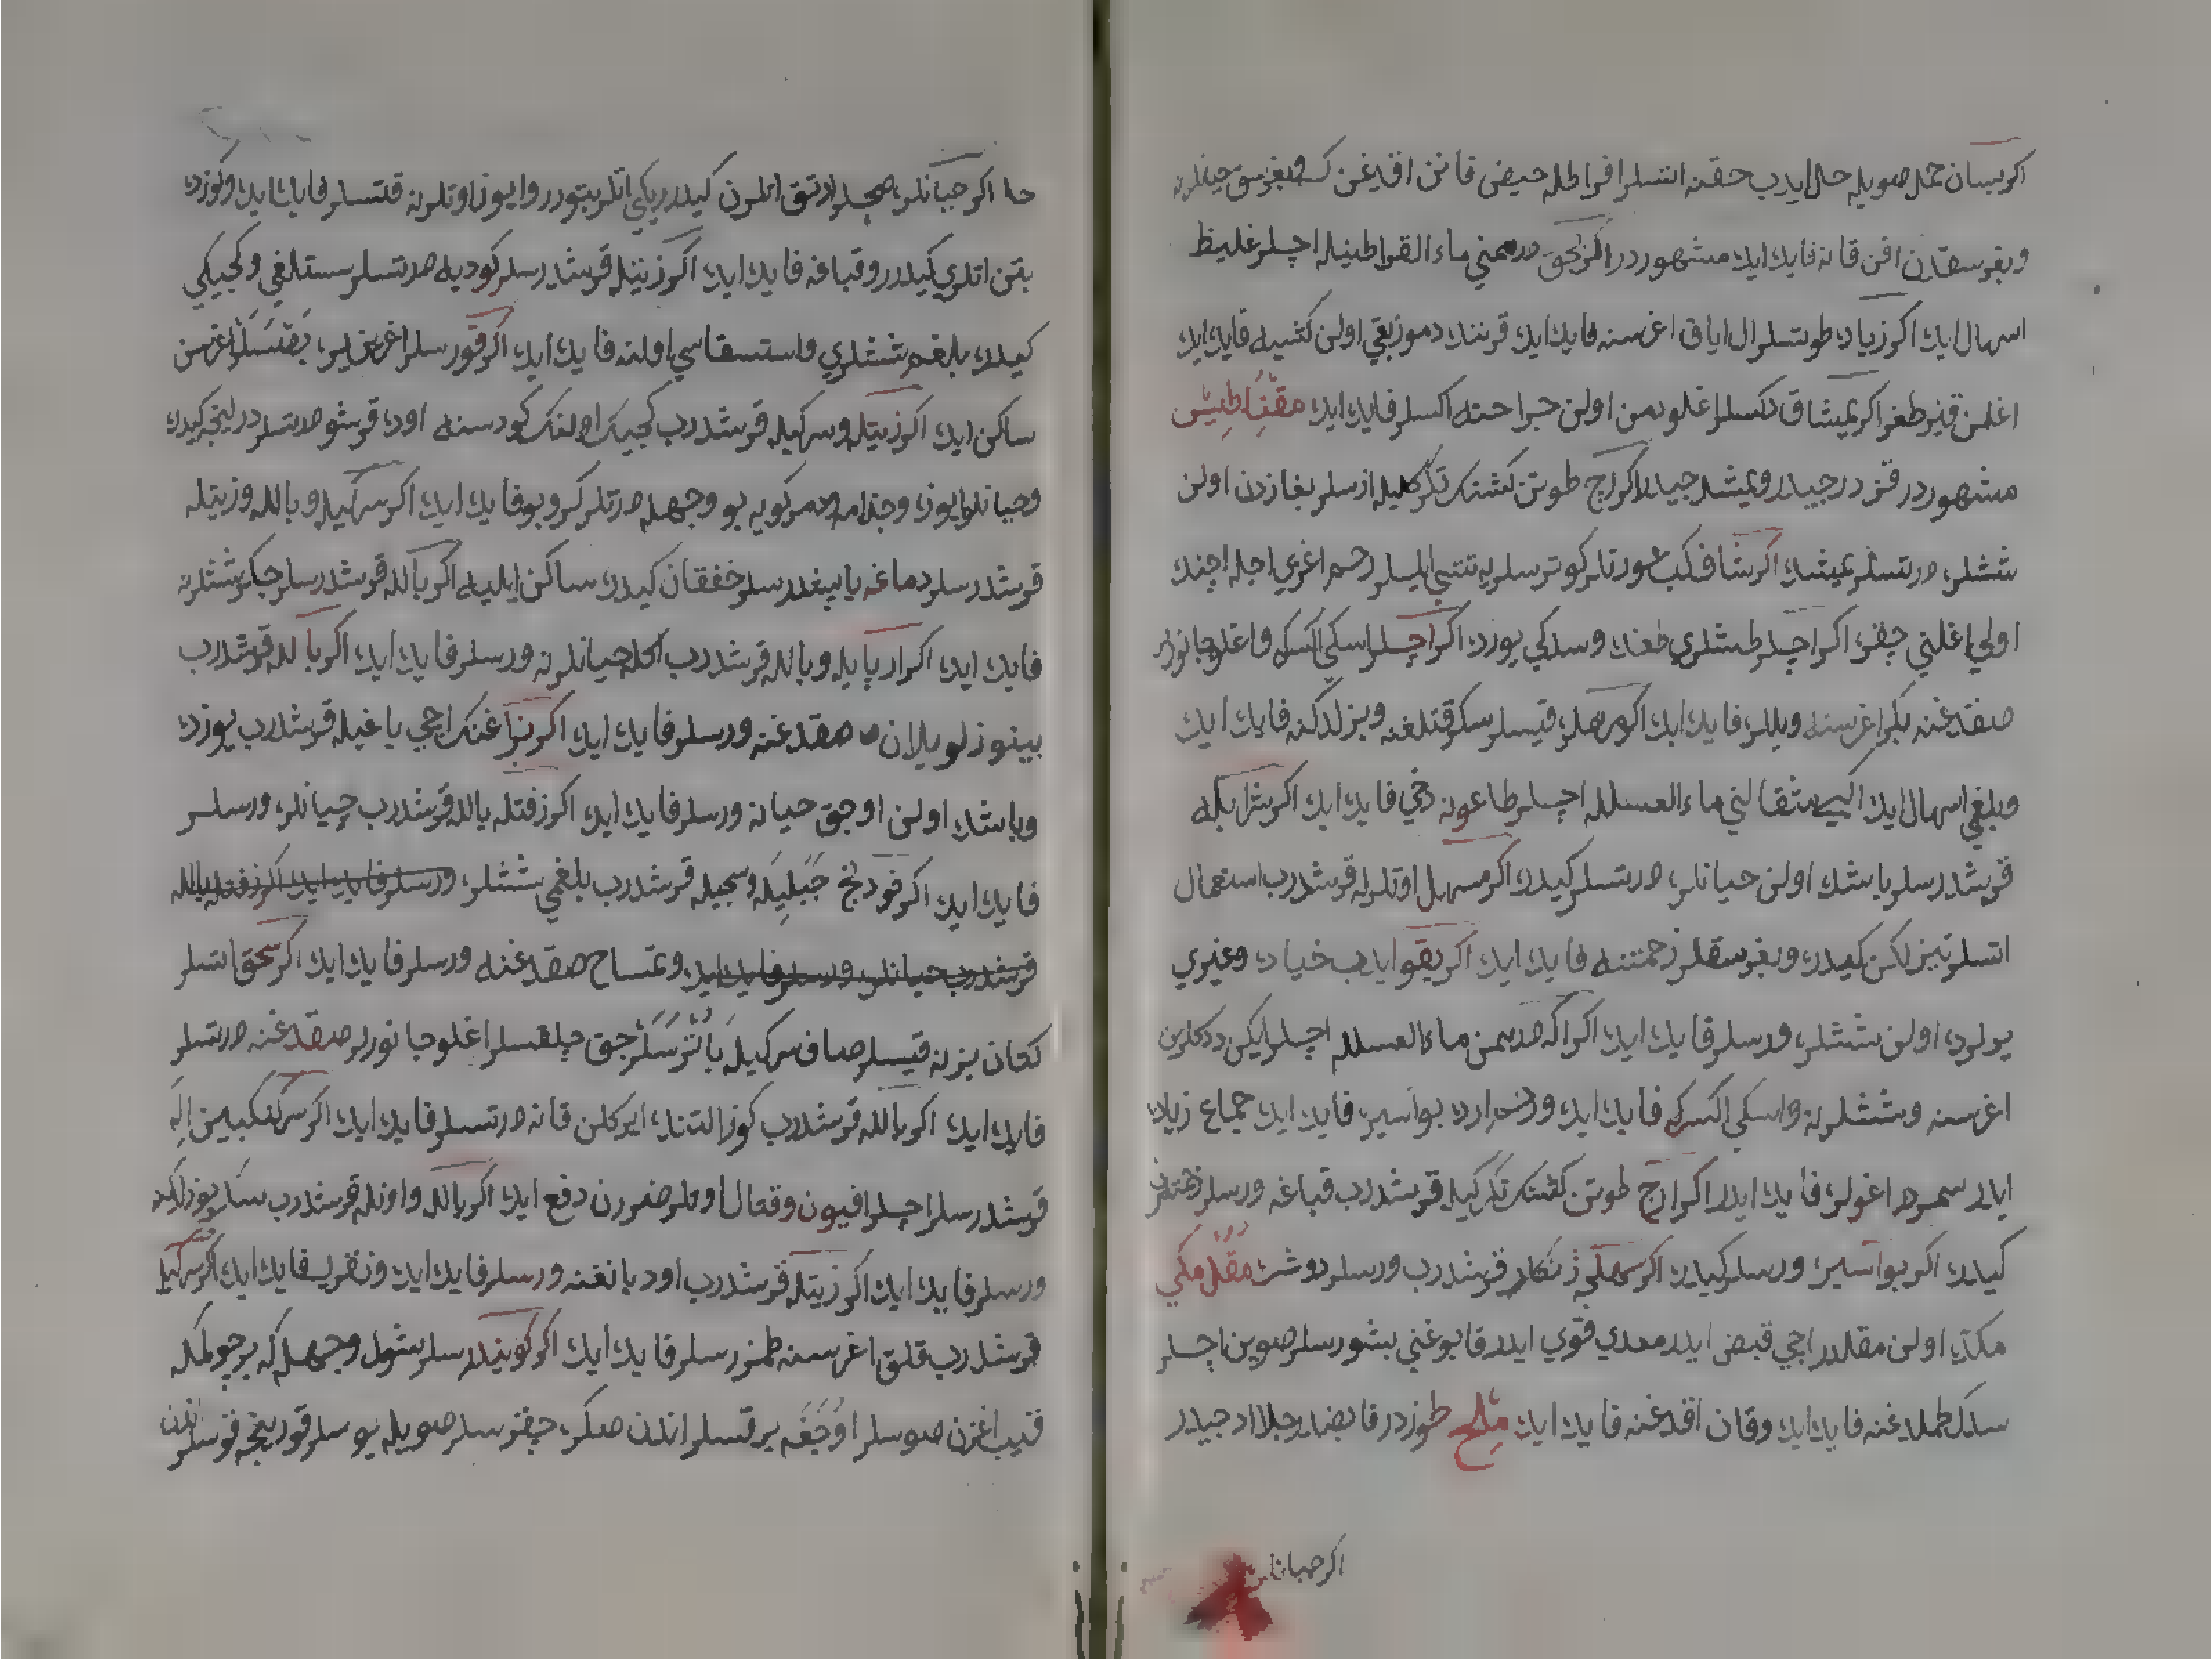 اكر لسان حمل صويله حل ايدب حقنه اتسلر افراطله حيض قانن اقدغن كسر بغرسق جبانلرنه
وبغرسقدن اقن قانه فايده ايده مشهوردر اكر درهمني ماء القراطنيله اچسلر غليظ
اسهال ايده اكر زياده طوتسلر ال اياق اغرسنه فايده ايده قرننك دموز بقي اولن كشيه فايده ايده
اغلن قيز طغر اكر يمشاق اكسلر اغلو دمن اولن جراحته اكسلر فايده ايده مقناطيس
مشهوردر قزدرجيدر ويمشدجيدر اكر اج طوتن كشنك تكركيله ازسلر بغازدن اولن
ششلره درتسلر يمشده اكر شاف كب عورتلر كوترسلر رحم اغري اجله اچنده
اولي اغلني چقره اكر اچسلر طمشلري طغده وسدكي يورده اكر اچسلر اسكي اكسركه واغلو جانورلر
صقدغنه بكر اغرسنه ويللره فايده ايده اكر مرهملره قتسلر سكر قتلغنه وبزلدكنه فايده ايده
وبلغمي اسهال ايده ايكي مثقالني ماء العسلله اچسلر طاعونه دخي فايده ايده اكر شرابله
قرشدرسلر باشده اولن حيانلره درتسلر كيدره اكر مسهل اوتلرله قرشدرب استعمال
اتسلر تيز لكن كيدره وبغرسقلر زحمتنه فايده ايده اكر يقو ايدب خياره وغيري
يرلرده اولن ششلره ورسلر فايده ايده اكر اكه درهمن ماء العسلله اچسلر ايكن دكلرين
اغرسنه وششلرنه واسكي اكسركه فايده ايده بواسيره فايده ايده جماع زياده
ايلر سمرر اغولره فايده ايدر اكر اج طوتن كشنك تكركيله قرشدرب قباغه ورسلر زحمتلرن
كيدره اكر بواسيره ورسلر كيدره اكر زنكار قرشدرب ورسلر دوشره مقل مكي
مكده اولن مقلدر اجي قبض ايدر معدي قوي ايدر قابوغني بشورسلر صوين اچسلر
سدك طملدغنه فايده ايده وقان اقدغنه فايده ايده ملح طوزدر قابضدر جلا ادجيدر
اكر حبانلر
حا اكر حبانلره صچسلر ارتق اتلرن كيدر ريكي اتلر بتورر وايوز اوتلرنه قتسلر فايده ايده وكوزده
بتن اتلري كيدرر وقباغه فايده ايده اكر زيتله قرشدرسلر كوديه درتسلر سستلغي وكجيكي
كيدره بلغم ششلري واستسقاسي اولنه فايده ايده اكر قورسلر اغرين لره بقسلر اغرسن
ساكن ايده اكر زيتله وسركيله قرشدرب كجيك اولنك كودسنه اوده قرشو درتسلر درلينجه كيدره
وحبانلر ايوزه وجذامه دمركويه بو وجهله درتلر كرو بو فايده ايده اكر سركيله وبالله وزيتله
قرشدرسلر دماغه يا بيغدرسلر خفقان كيدره ساكن ايليه اكر بالله قرشدرسلر جكر ششلرنه
فايده ايده اكر ارپايله وبالله قرشدرب اكله حبانلرنه ورسلر فايده ايده اكر بالله قرشدرب
بينوزلو يلان صقدغنه ورسلر فايده ايده اكر بزاغنك اجي ياغيله قرشدرب يوزده
وباشده اولن اوجق حبانه ورسلر فايده ايده اكر زفتله بالله قرشدرب چبانلره ورسلر
فايده ايده اكر فودنج جبليله وسجيله قرشدرب بلغمي ششلره ورسلر فايده ايده اكر زفتله بالله
قرشدرب حبانلره ورسلر فايده ايده وتمساح صقدغنه ورسلر فايده ايده اكر سحق اتسلر
كتان بزنه قيسلر صاف سركيله باترسلر جق چلقسلر اغلو جانورلر صقدغنه درتسلر
فايده ايده اكر بالله قرشدرب كوز التنده ايركلن قانه درتسلر فايده ايده اكر سركنكبين اله
قرشدرسلر اچسلر افيون وقتال اوتلر ضررن دفع ايده اكر بالله واونله قرشدرب سكر بوزلدكنه
ورسلر فايده ايده اكر زيتله قرشدرب اود يانغنه ورسلر فايده ايده ونقرسه فايده ايده اكر سركيله
قرشدرب قلق اغرسنه طمزرسلر فايده ايده اكر كوينددرسلر شول وجهله كه بر چولمكله
قيب اغزن صوسلر اوجغه برقسلر اندن صكره چقرسلر صويله يوسلر قورينجه قوسلر اندن